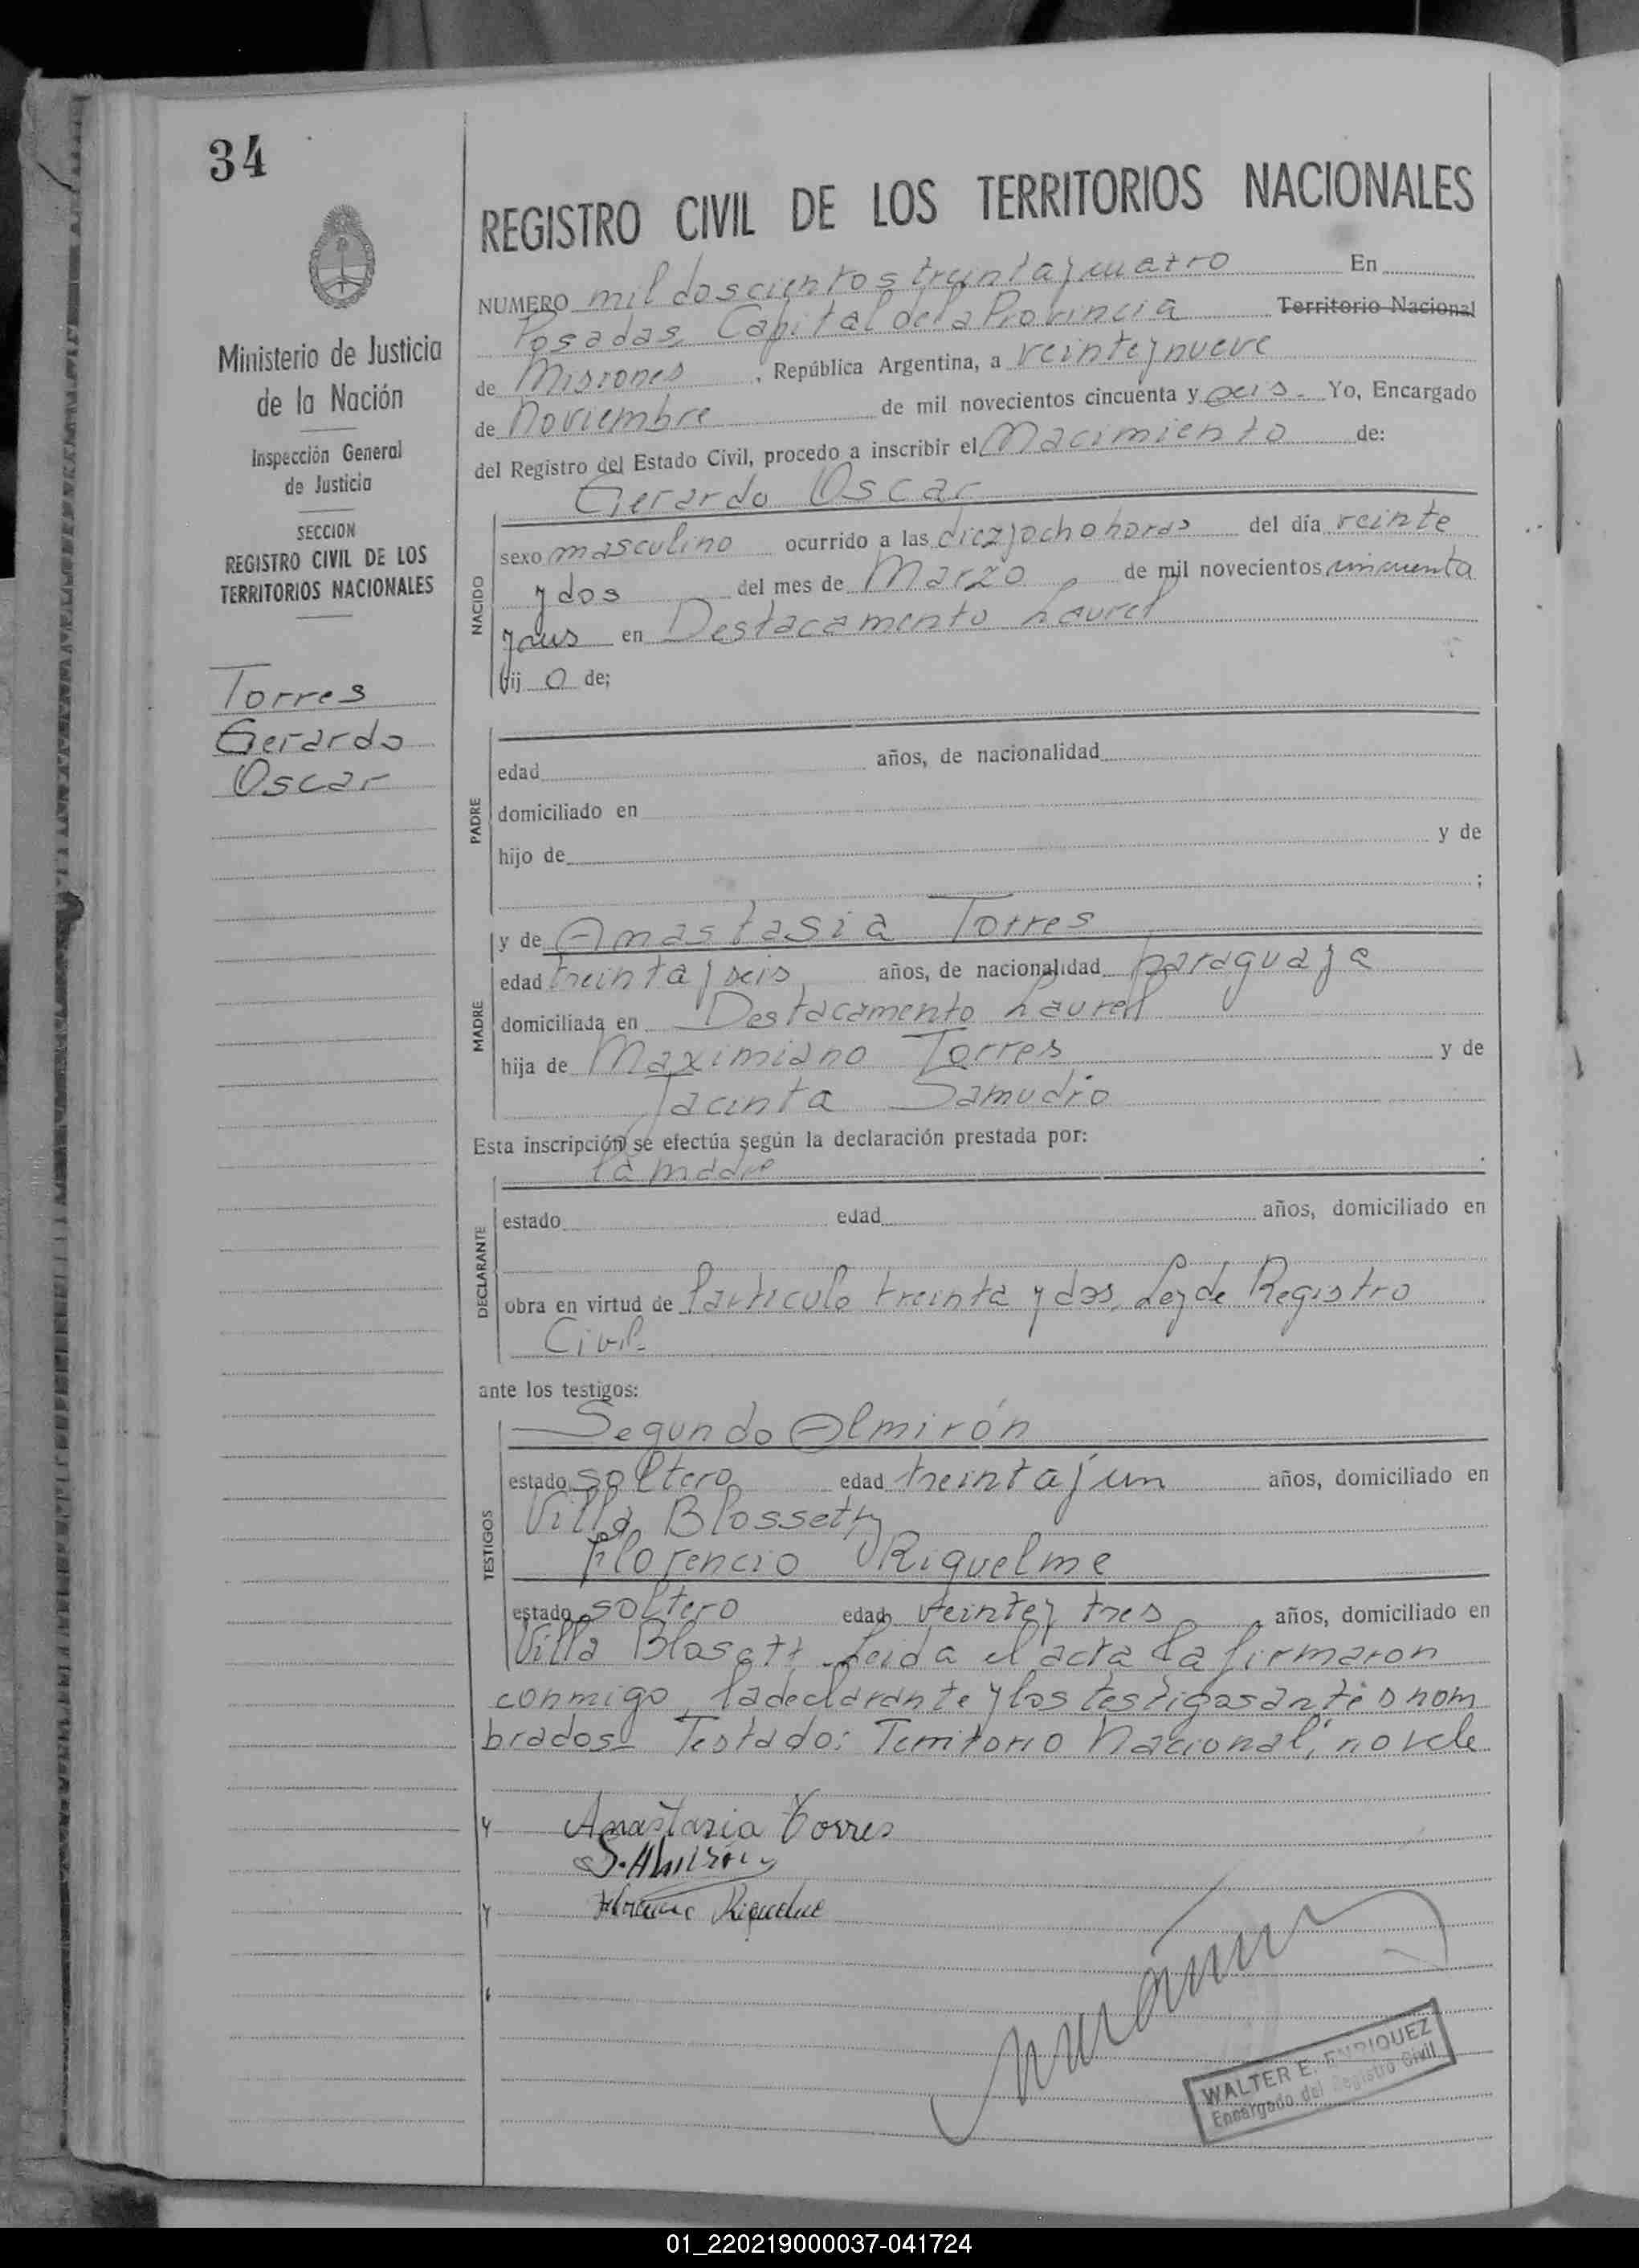 34
Ministerio de Justicia
de la Nación
Inspección General
de Justicia
SECCION
REGISTRO CIVIL DE LOS
TERRITORIOS NACIONALES
Torres
Gerardo
Oscar
REGISTRO CIVIL DE LOS TERRITORIOS NACIONALES
NUMERO mil doscientos treinta y cuatro En
Posadas, Capital de la Provincia Territorio Nacional
de Misiones, República Argentina, a veinte y nueve
de Noviembre de mil novecientos cincuenta y seis. Yo, Encargado
del Registro del Estado Civil, procedo a inscribir el Nacimiento de:
Gerardo Oscar
NACIDO
sexo masculino ocurrido a las diez y ocho horas del día veinte
y dos del mes de Marzo, de mil novecientos cincuenta
y seis en Destacamento Laurel
hij o de;
PADRE
edad años, de nacionalidad
domiciliado en
hijo de y de
;
MADRE
y de Anastasia Torres
edad treinta y seis años, de nacionalidad paraguaya
domiciliada en Destacamento Laurel
hija de Maximiano Torres y de
Jacinta Samudio
Esta inscripción se efectúa según la declaración prestada por:
la madre
DECLARANTE
estado edad años, domiciliado en
obra en virtud de l'articulo treinta y dos, Ley de Registro
Civil.
ante los testigos:
TESTIGOS
Segundo Almirón
estado soltero edad treinta y un años, domiciliado en
Villa Blosseth
Florencio Riquelme
estado soltero edad veinte y tres, años, domiciliado en
Villa Blosett. Leida el acta la firmaron
conmigo, la declarante y los testigos antes nom
brados= Testado: Territorio Nacional, no vale
Anastazia Torres
S. Almirón
Florencio Riquelme
WALTER E. ENRIQUEZ
Encargado del Registro Civil
01_220219000037-041724